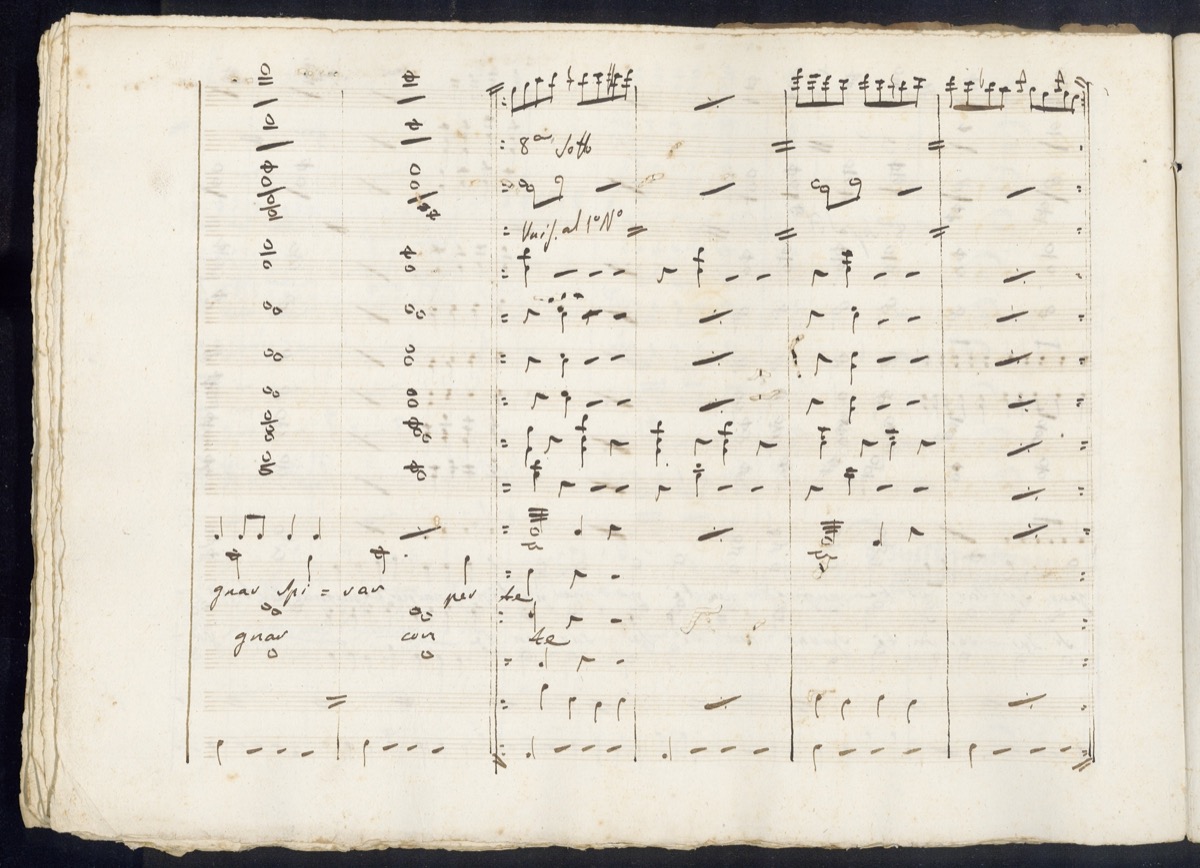 8ª Sotto
Unis. al 1º Nº
gnar Spi = rar per te
gnar con te